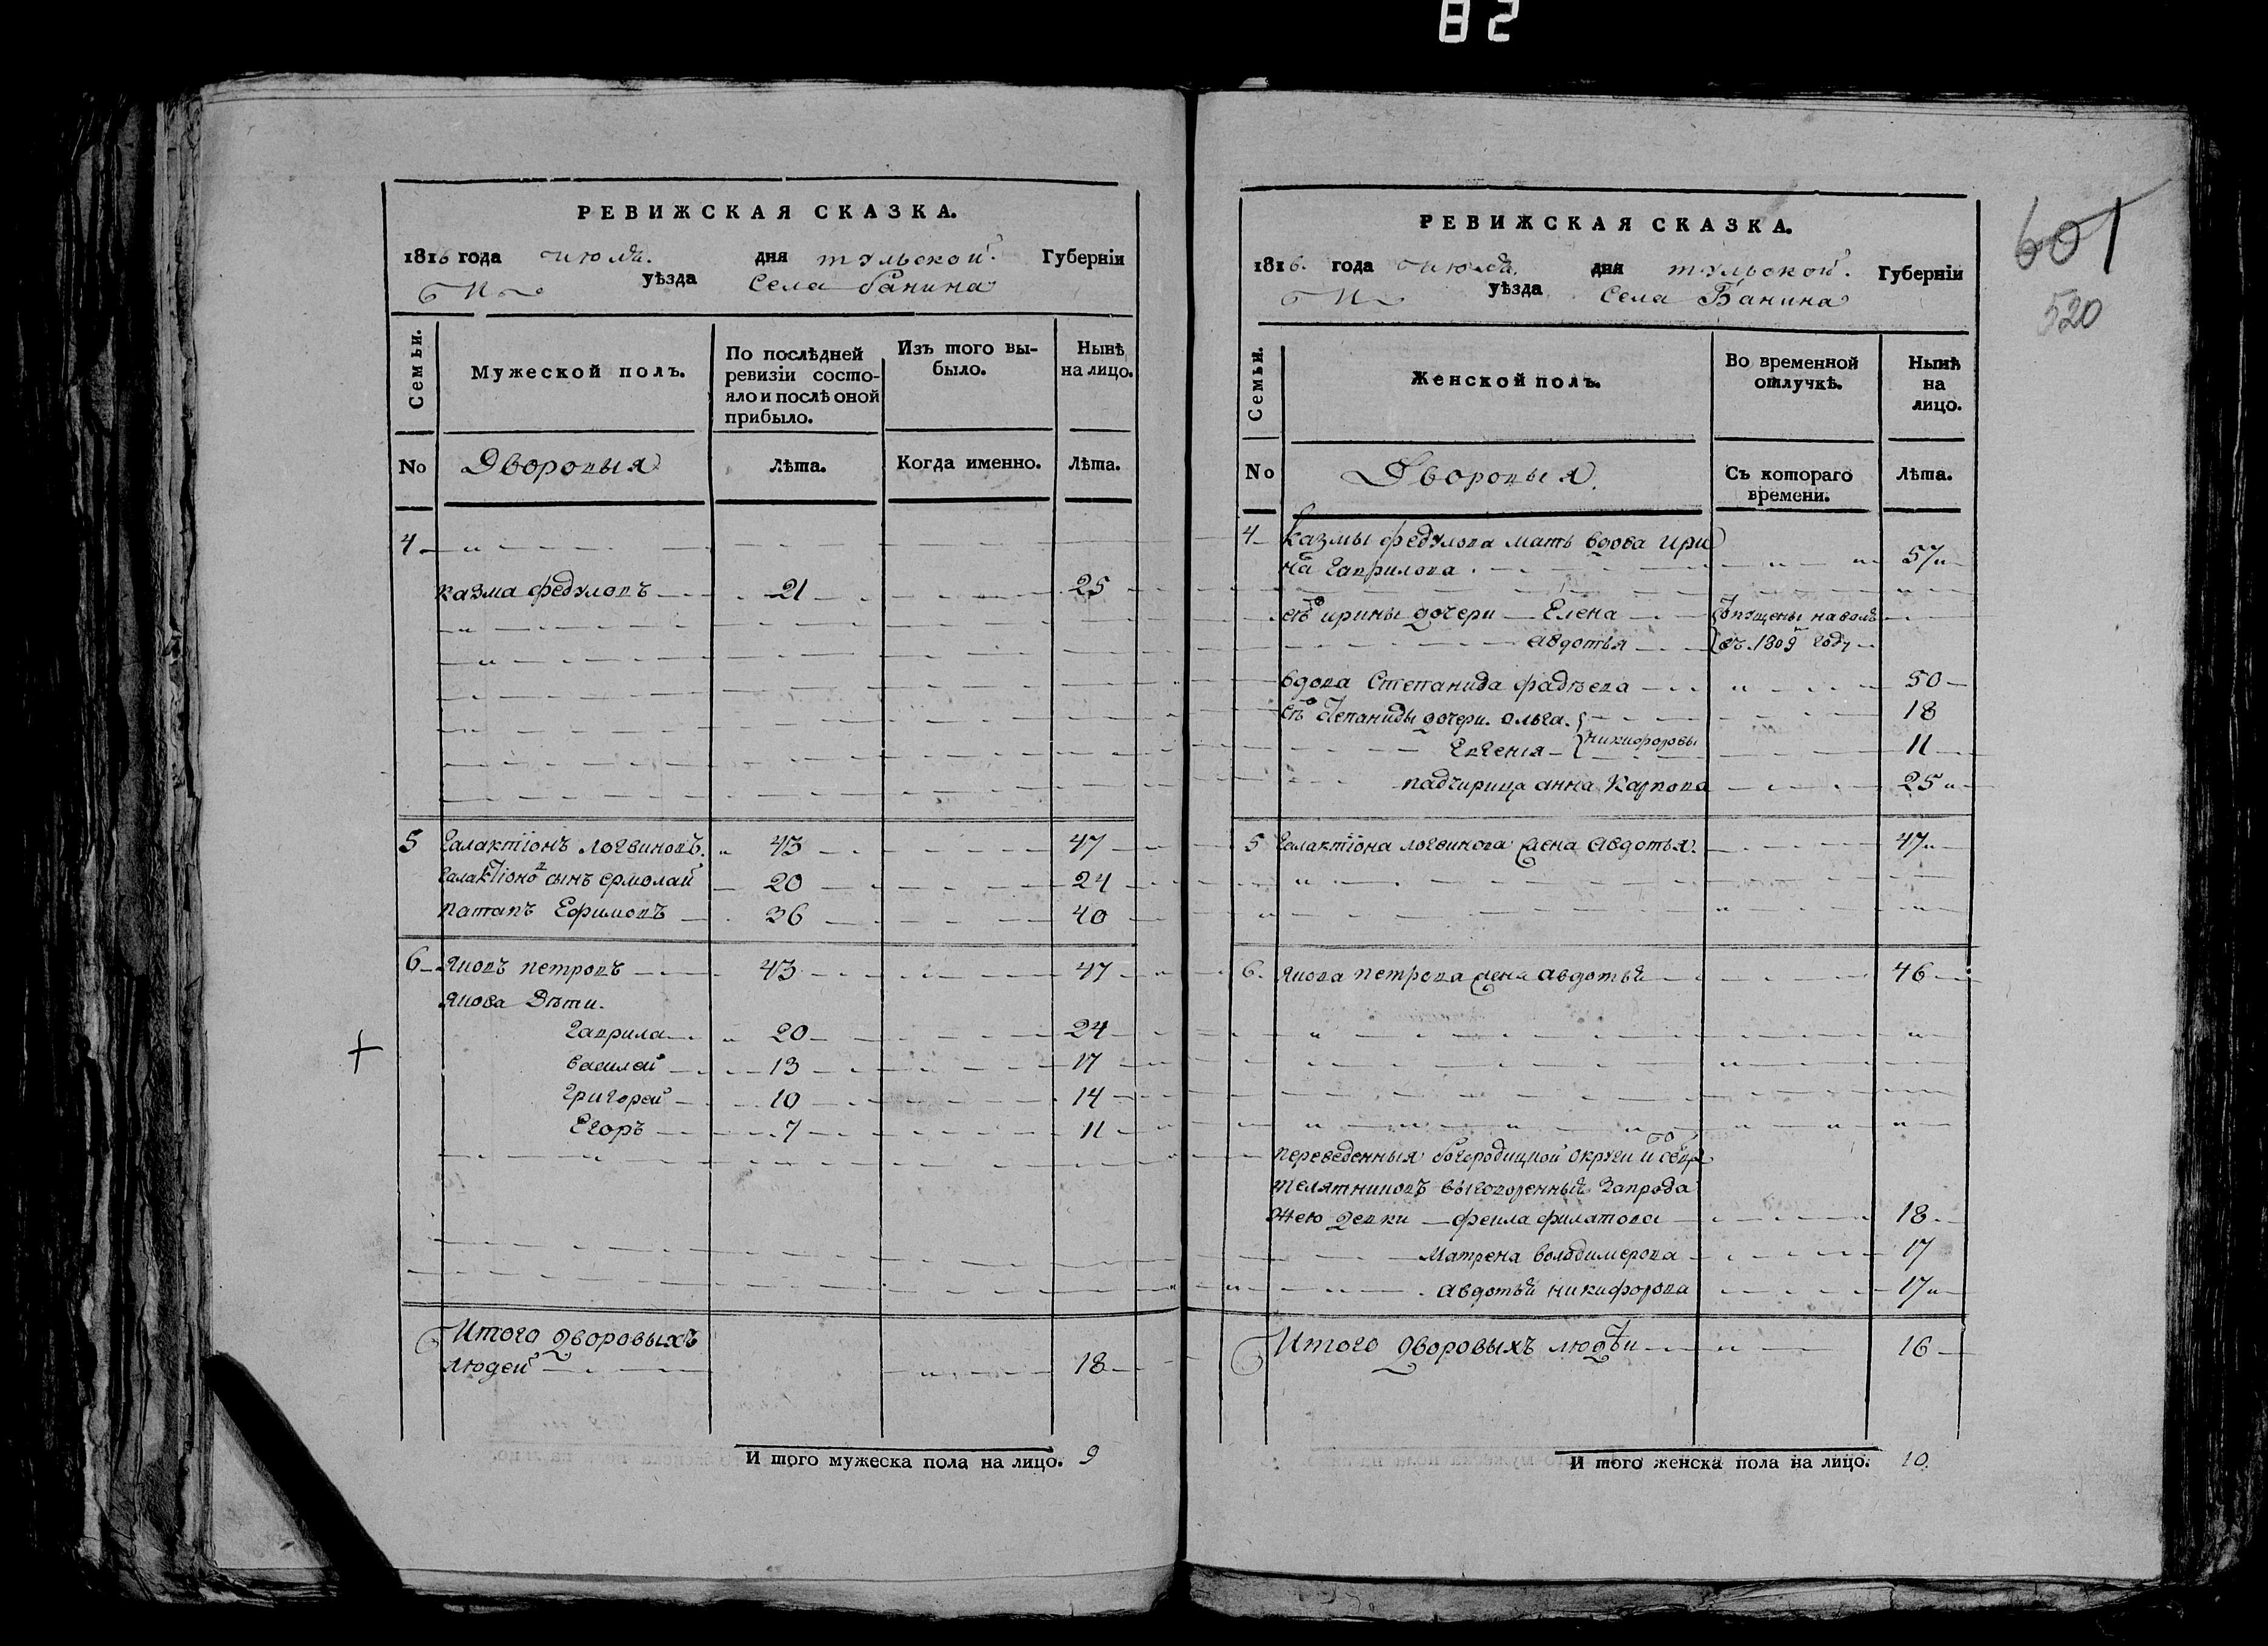 82
РЕВИЖСКАЯ СКАЗКА.
1816 года июля дня тульской Губерніи
уѣзда Села Банина
Семьи.
Мужеской полъ.
По послѣдней
ревизіи состо-
яло и послѣ оной
прибыло.
Изъ того вы-
было.
Нынѣ
на лицо.
No Дворовыя Лѣта. Когда именно. Лѣта.
4
казма федуловъ 21 25
5 Галактіонъ логвиновъ. 43 47
Галактіоно в сынъ ермолай 20 24
патапъ Ефимовъ 36 40
6 Яковъ петровъ 43 47
Якова Дѣти.
Гаврила 20 24
василей 13 17
Григорей 10 14
Егоръ 7 11
Итого дворовыхъ
людей 18
И того мужеска пола на лицо. 9
601
520
РЕВИЖСКАЯ СКАЗКА.
1816. года июля дня тульской Губерніи
уѣзда Села Банина
Семьи.
Женской полъ.
Во временной
отлучкѣ.
Нынѣ
на
лицо.
No Дворовыя. Съ котораго
времени. Лѣта.
4 казмы федулова мать вдова ири
на гаврилова 57
ирины дочери Елена отпущены наволю
авдотья въ 1809 году
вдова Степанида фадѣева 50
степаниды дочери. ольга. 18
Евгенія никифоровы 11
падчирица анна Карпова 25
5 Галактіона логвинова жена авдотья. 47
6. Якова петрова жена авдотья 46
переведенныя богородицкой округи
телятниковъ выговоренныя запрода
жею девки феила филатова 18
Матрена володимерова 17
авдотья никифорова 17
Итого дворовыхъ людѣи 16
И того женска пола на лицо. 10